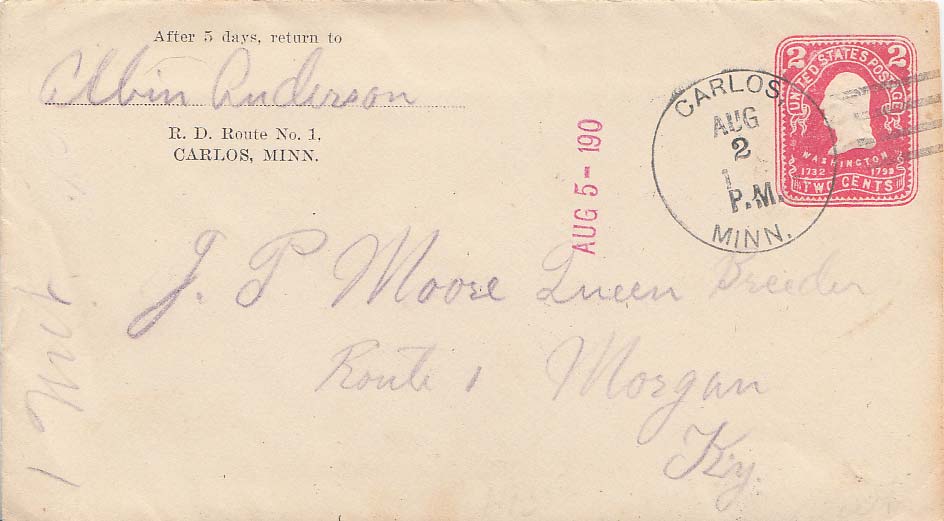 After 5 days, return to
Albin Anderson
R. D. Route No. 1,
CARLOS, MINN.
AUG 5 - 190
CARLOS,
AUG
2
1
P.M.
MINN.
2 2
UNITED STATES POSTAGE
WASHINGTON
1732 1799
TWO CENTS
J. P Moore Queen Breeder
Route 1 Morgan
Ky.
1